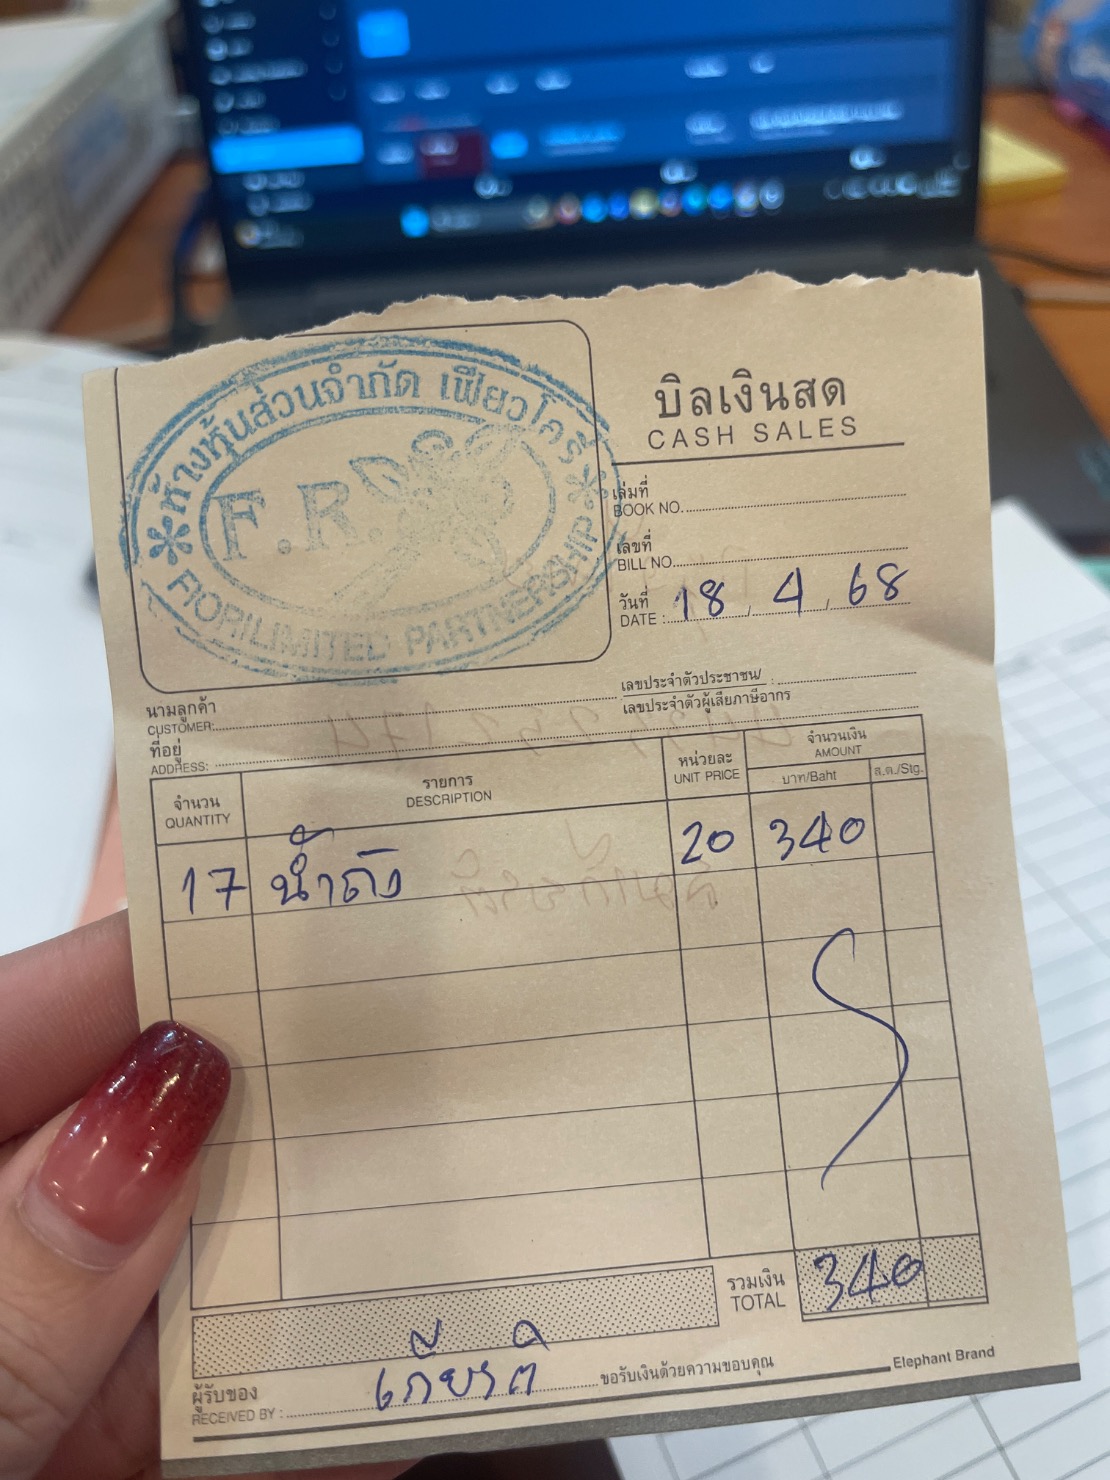 ห้างหุ้นส่วนจำกัด เฟียวโคร์
F.R.
FIORI LIMITED PARTNERSHIP
บิลเงินสด
CASH SALES
เล่มที่
BOOK NO.
เลขที่
BILL NO.
วันที่
DATE : 18 / 4 / 68
เลขประจำตัวประชาชน/ :
เลขประจำตัวผู้เสียภาษีอากร
นามลูกค้า
CUSTOMER:
ที่อยู่
ADDRESS:
จำนวน
QUANTITY
รายการ
DESCRIPTION
หน่วยละ
UNIT PRICE
จำนวนเงิน
AMOUNT
บาท/Baht ส.ต./Stg.
17 น้ำถัง 20 340
รวมเงิน
TOTAL 340
ผู้รับของ
RECEIVED BY : เกียรติ ขอรับเงินด้วยความขอบคุณ
Elephant Brand